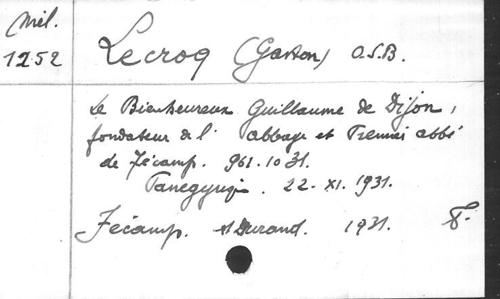 Mil.
1252
Lecroq (Gaston) O.S.B.
Le Bienheureux Guillaume de Dijon,
fondateur de l'abbaye et Premier abbé
de Fécamp. 961-1031.
Panégyriq. 22-XI.1931.
Fécamp. Durand. 1931. F.